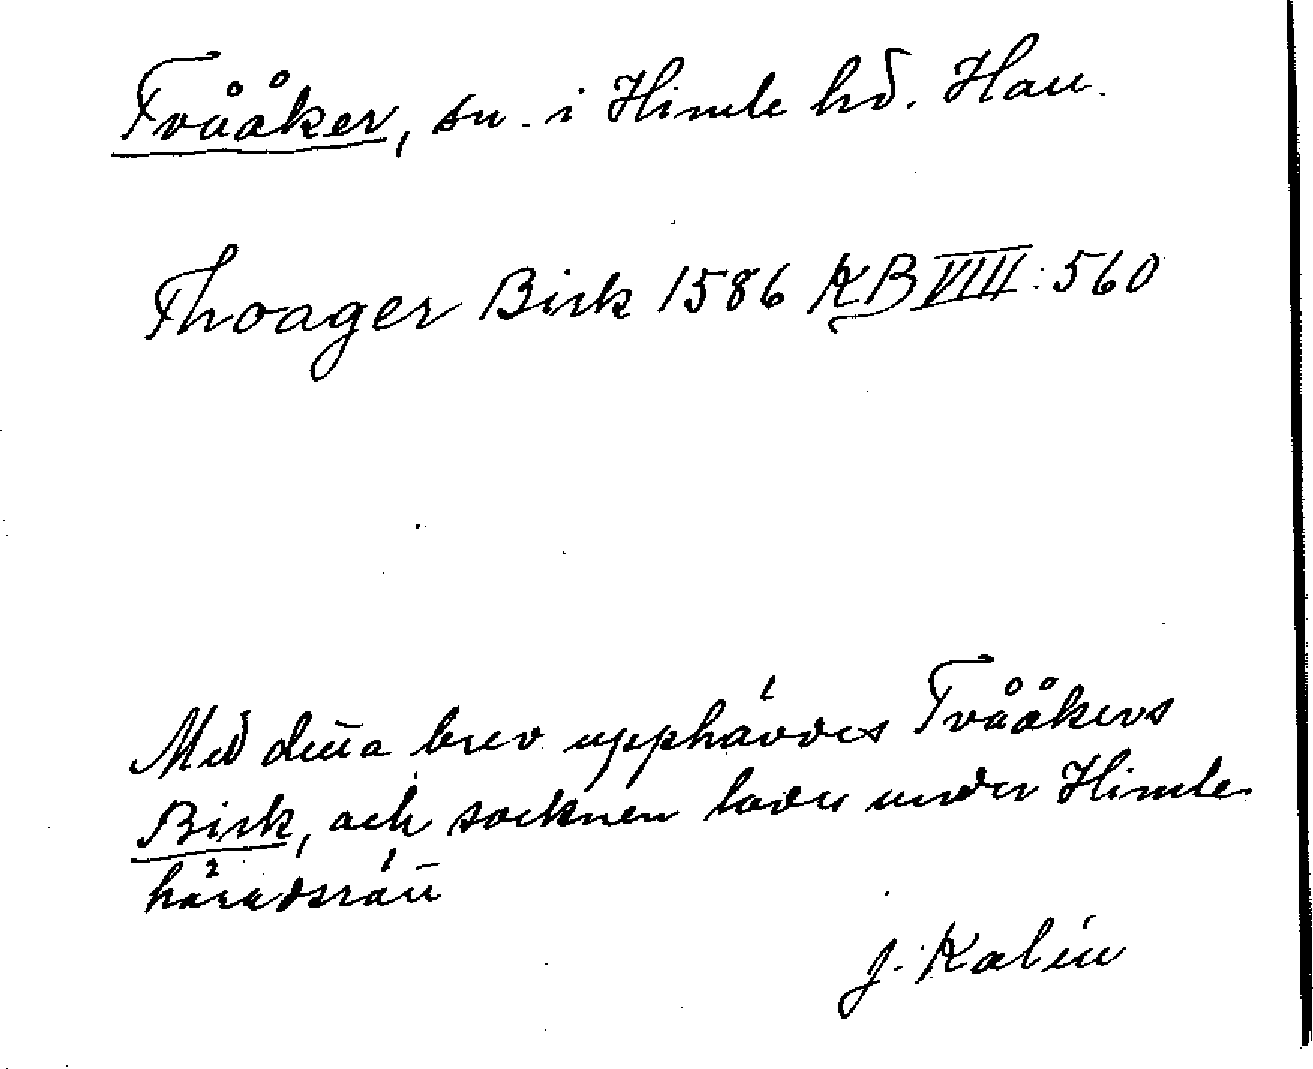 Tvååker, sn. i Himle hd. Hall.
Thoager Birk 1586 KB VIII: 560
Med detta brev upphävdes Tvååkers
Birk, och socknen lades under Himle
häradsrätt
J. Kalén